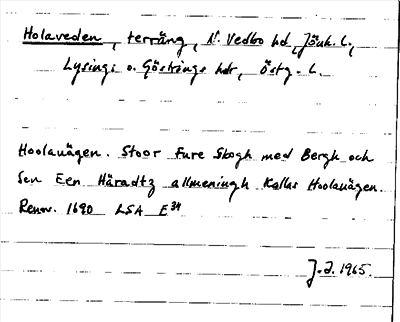 Holaveden, terräng, N. Vedbo hd, Jönk. L.,
Lysings o. Göstrings hdr, Östg. L.
Hoolauägen. Stoor Fure Skogh med Bergh och
Sen Een Häradtz allmeningh Kallas Hoolauägen.
Renov. 1690 LSA E34
J.S. 1965.